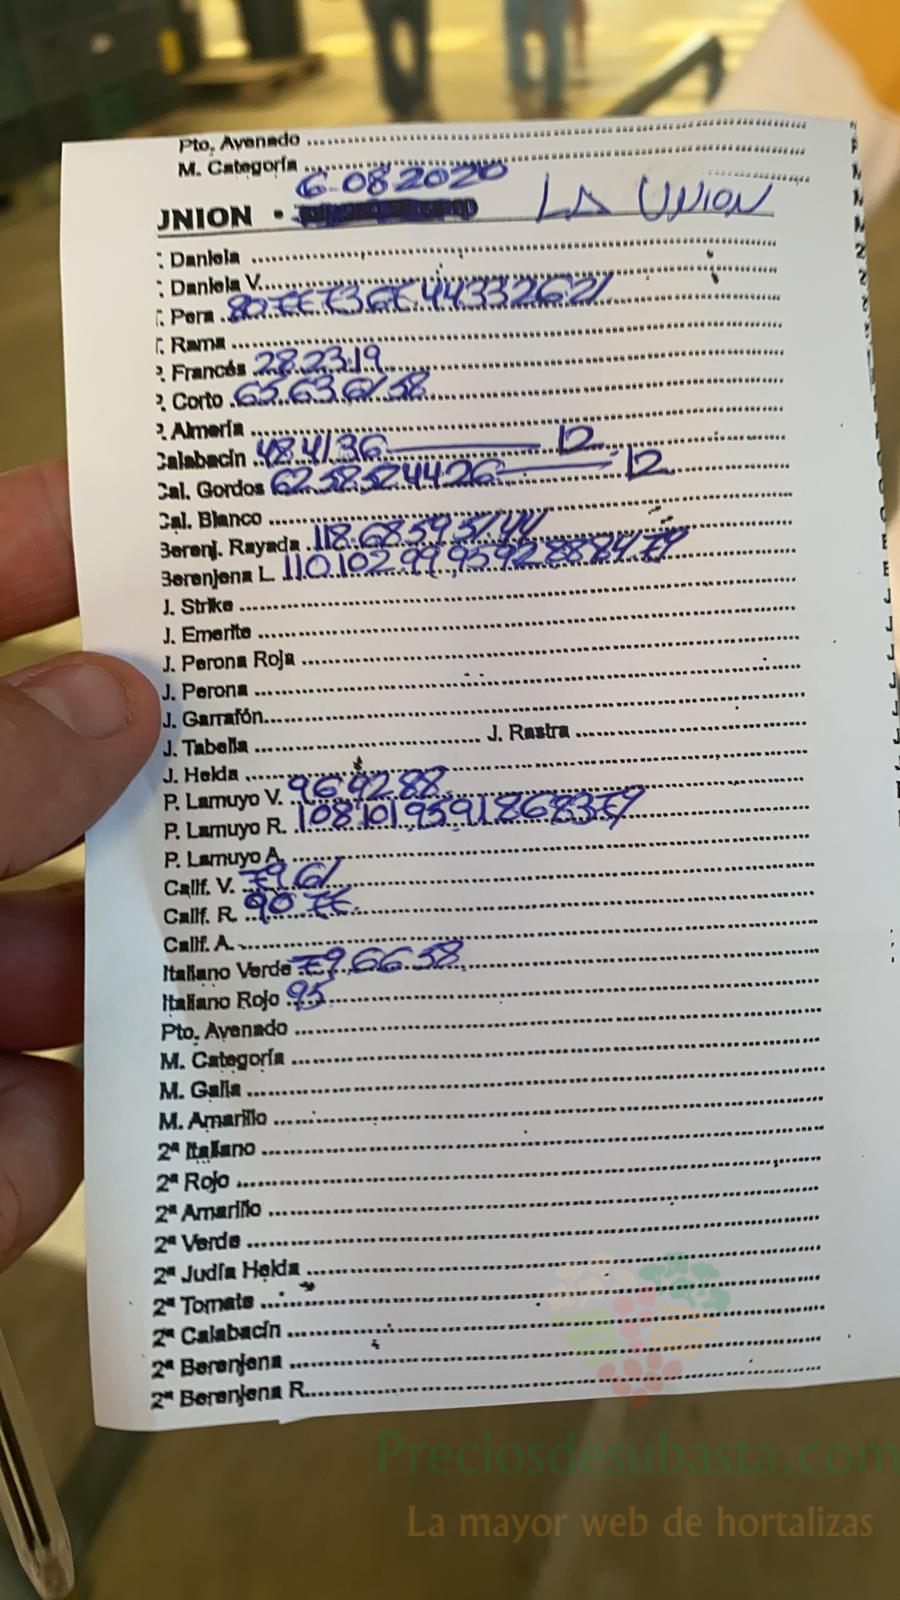 Pto. Avenado
M. Categoría
6-08 2020
UNION • LA UNION
T. Daniela
T. Daniela V.
T. Pera 80 77 73 67 44 33 26 21
T. Rama
P. Francés 28 23 19
P. Corto 65 63 61 58
P. Almería
Calabacín 48 41 36 — 12
Cal. Gordos 62 58 52 44 26 — 12
Cal. Blanco
Berenj. Rayada 118 68 59 51 44
Berenjena L 110 102 99 95 92 88 84 79
J. Strike
J. Emerite
J. Perona Roja
J. Perona
J. Garrafón
J. Tabella J. Rastra
J. Helda
P. Lamuyo V. 96 92 88
P. Lamuyo R. 108 101 95 91 86 83 79
P. Lamuyo A.
Calif. V. 79 61
Calif. R. 90 77
Calif. A.
Italiano Verde 79 66 58
Italiano Rojo 95
Pto. Avenado
M. Categoría
M. Galia
M. Amarillo
2ª Italiano
2ª Rojo
2ª Amarillo
2ª Verde
2ª Judía Helda
2ª Tomate
2ª Calabacín
2ª Berenjena
2ª Berenjena R.
Preciosdesubasta.com
La mayor web de hortalizas